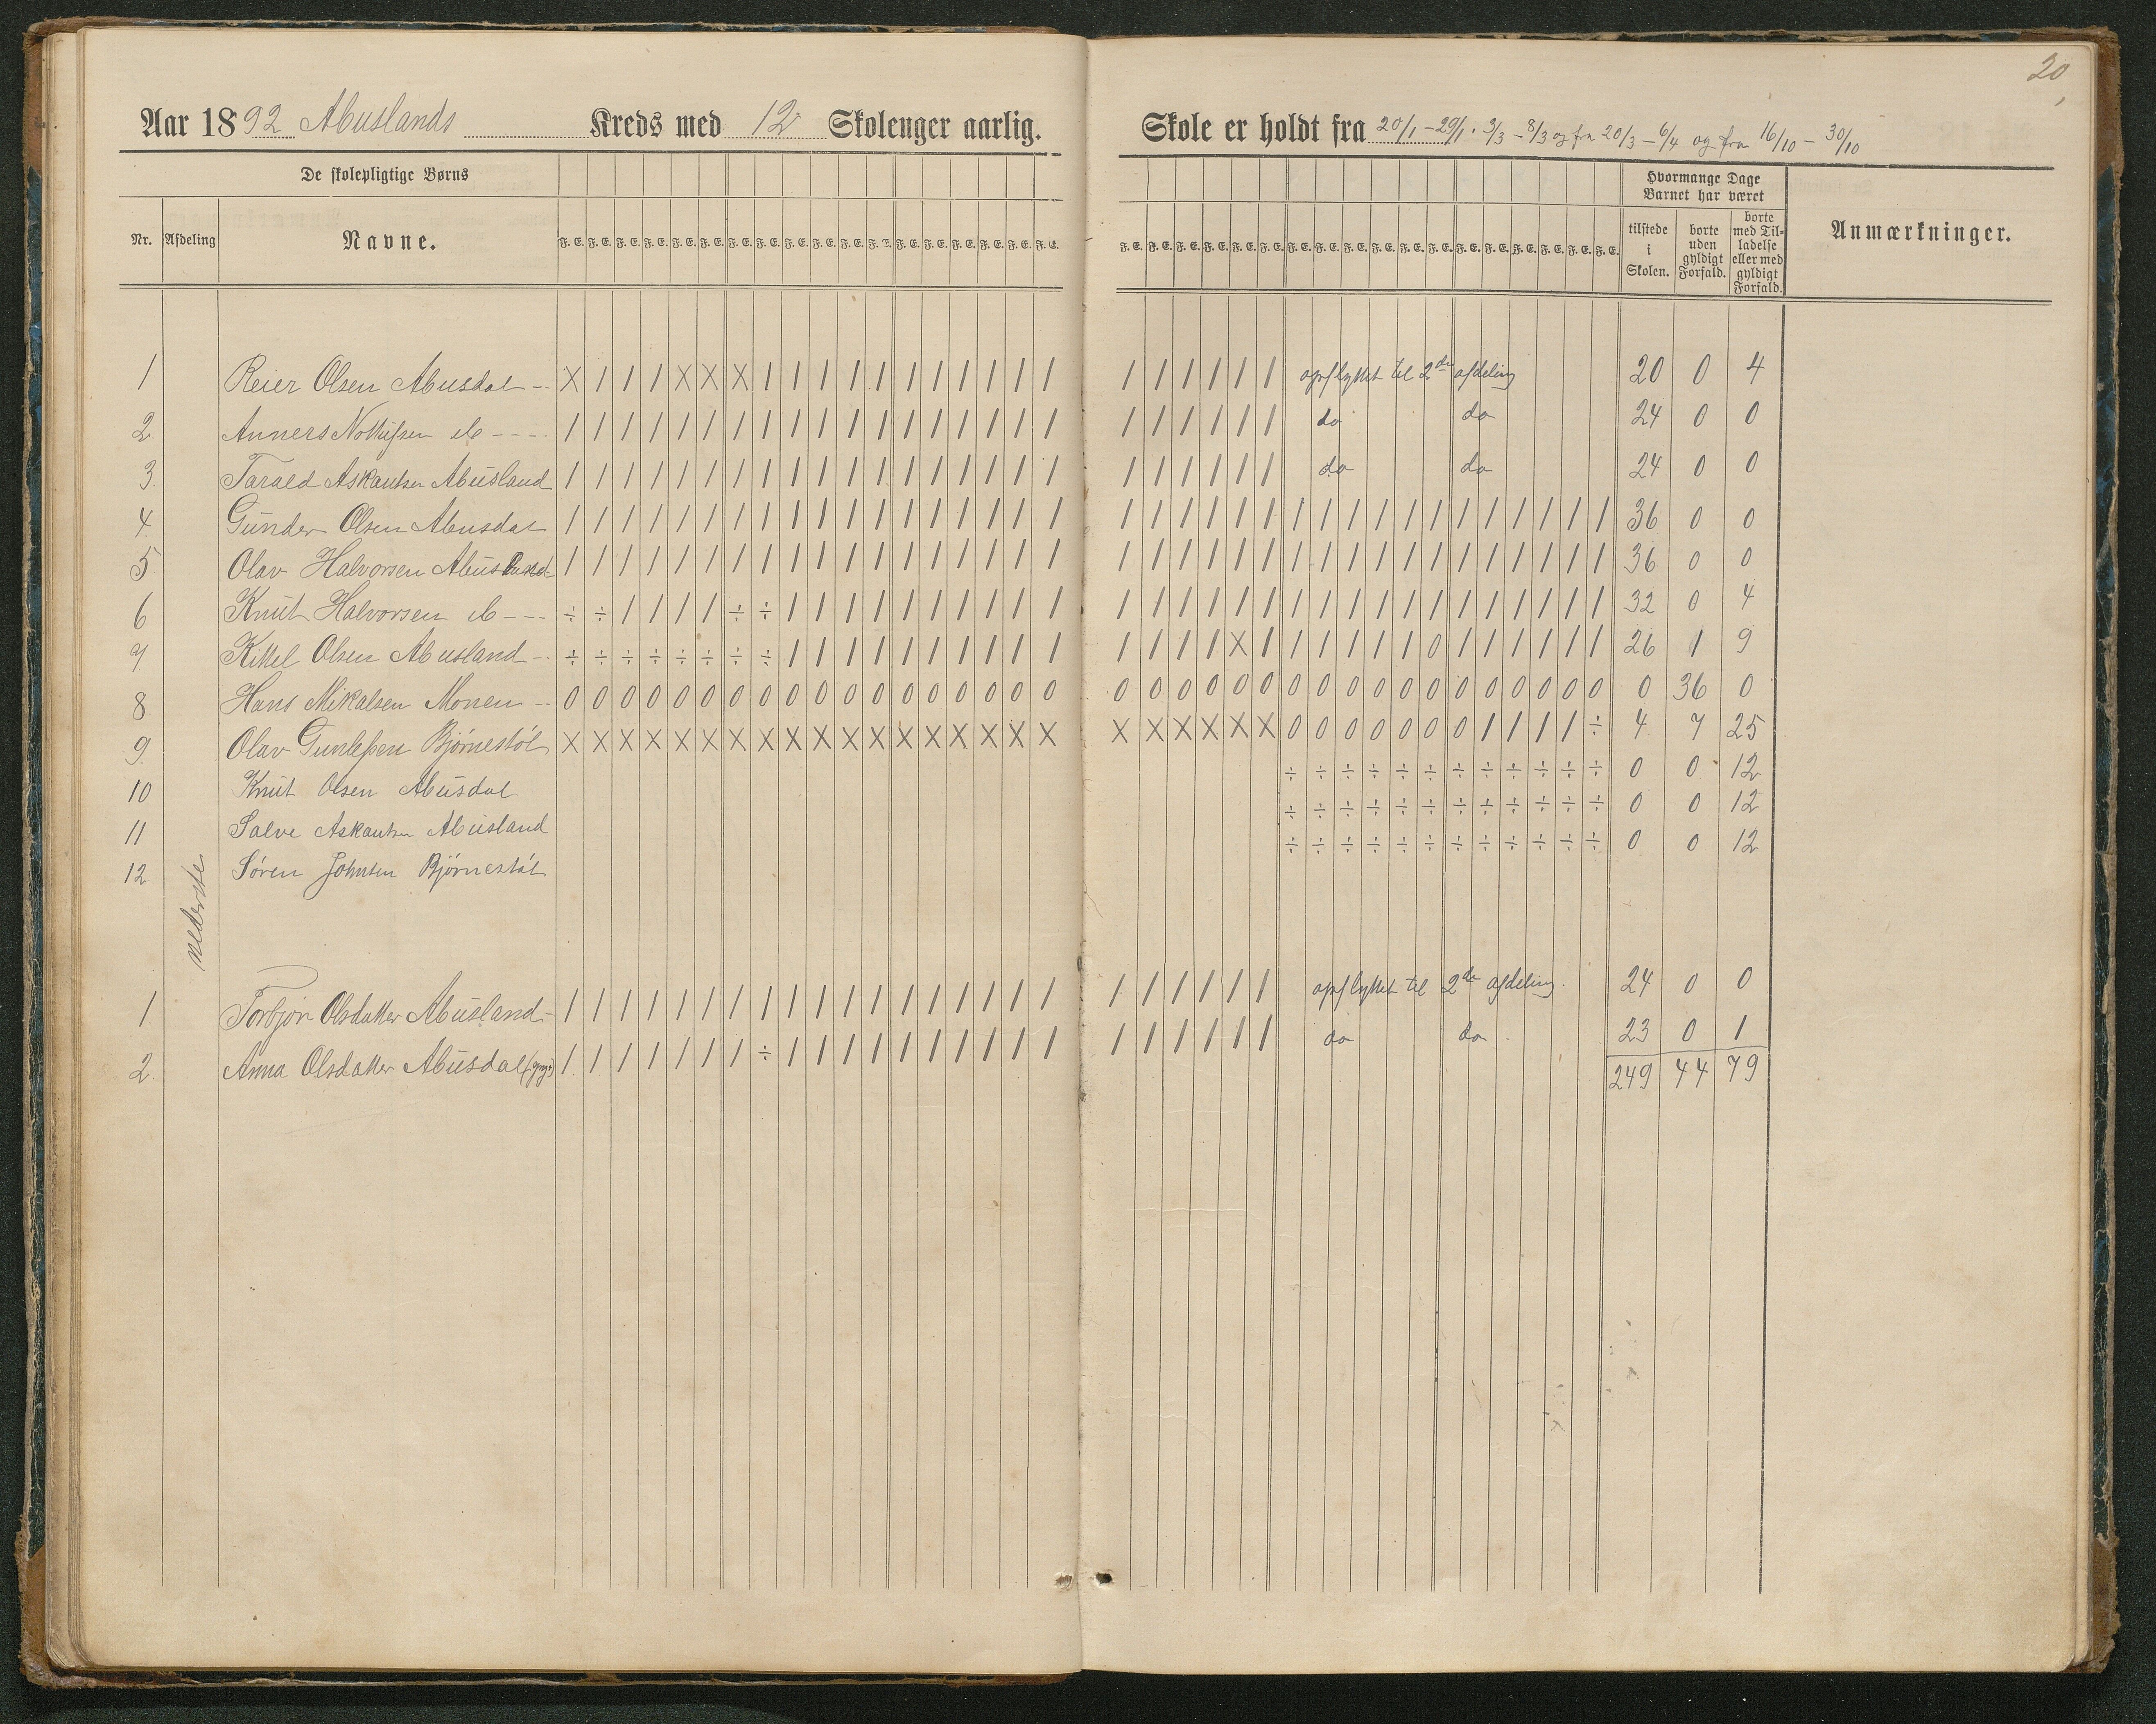 20
Aar 1892 Abuslands Kreds med 12 Skoleuger aarlig. Skole er holdt fra 20/1 - 29/1. 3/3 - 8/3 og fra 20/3 - 6/4 og fra 16/10 - 30/10
De skolepligtige Børns
Hvormange Dage Barnet har været
Nr. Afdeling Navne. F. E. F. E. F. E. F. E. F. E. F. E. F. E. F. E. F. E. F. E. F. E. F. E. F. E. F. E. F. E. F. E. F. E. F. E. F. E. F. E. F. E. F. E. F. E. F. E. F. E. F. E. F. E. F. E. F. E. F. E. F. E. F. E. F. E. F. E. F. E. F. E. tilstede i Skolen. borte uden gyldigt Forfald. borte med Tilladelse eller med gyldigt Forfald. Anmærkninger.
1 Reier Olsen Abusdal -- X / / / X X X / / / / / / / / / / / / / / / / / opflyttet til 2den afdeling 20 0 4
2. Anners do ---- / / / / / / / / / / / / / / / / / / / / / / / / do do 24 0 0
3. Tarald Askautsen Abusland / / / / / / / / / / / / / / / / / / / / / / / / do do 24 0 0
4. Gunder Olsen Abusdal / / / / / / / / / / / / / / / / / / / / / / / / / / / / / / / / / / / / 36 0 0
5 Olav Halvorsen Abusland / / / / / / / / / / / / / / / / / / / / / / / / / / / / / / / / / / / / 36 0 0
6 Knut Halvorsen do --- ÷ ÷ / / / / ÷ ÷ / / / / / / / / / / / / / / / / / / / / / / / / / / / / 32 0 4
7 Kittel Olsen Abusland -- ÷ ÷ ÷ ÷ ÷ ÷ ÷ ÷ / / / / / / / / / / / / / / X / / / / / / 0 / / / / / / 26 1 9
8 Hans Mikalsen Monen -- 0 0 0 0 0 0 0 0 0 0 0 0 0 0 0 0 0 0 0 0 0 0 0 0 0 0 0 0 0 0 0 0 0 0 0 0 0 36 0
9. Olav Gunlefsen Bjørnestøl X X X X X X X X X X X X X X X X X X X X X X X X 0 0 0 0 0 0 0 / / / / ÷ 4 7 25
10 Knut Olsen Abusdal ÷ ÷ ÷ ÷ ÷ ÷ ÷ ÷ ÷ ÷ ÷ ÷ 0 0 12
11 Salve Askautsen Abusland ÷ ÷ ÷ ÷ ÷ ÷ ÷ ÷ ÷ ÷ ÷ ÷ 0 0 12
12 Søren Johnsen Bjørnestøl ÷ ÷ ÷ ÷ ÷ ÷ ÷ ÷ ÷ ÷ ÷ ÷ 0 0 12
nederste
1 Torbjør Olsdatter Abusland - / / / / / / / / / / / / / / / / / / / / / / / / opflyttet til 2den afdeling. 24 0 0
2. Anna Olsdatter Abusdal / / / / / / / ÷ / / / / / / / / / / / / / / / / do do 23 0 1
249 44 79